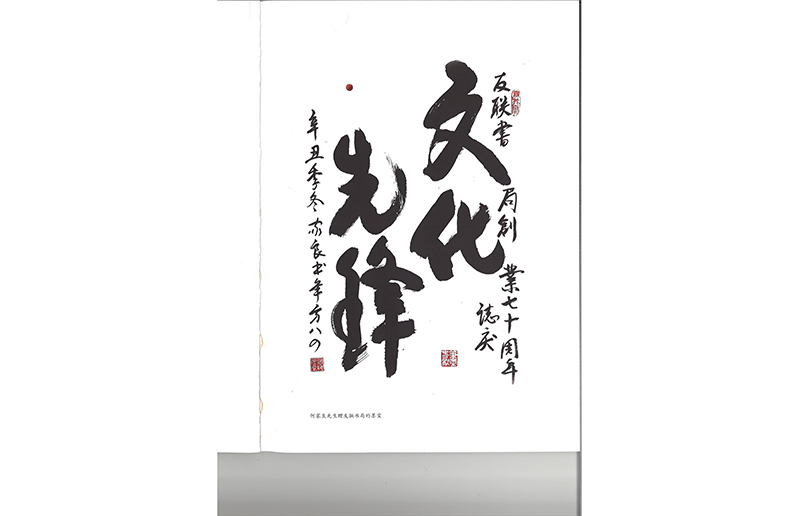 友联書局創業七十周年
誌庆
文化
先鋒
辛丑季冬家良书年方八四
何家良先生赠友联书局的墨宝